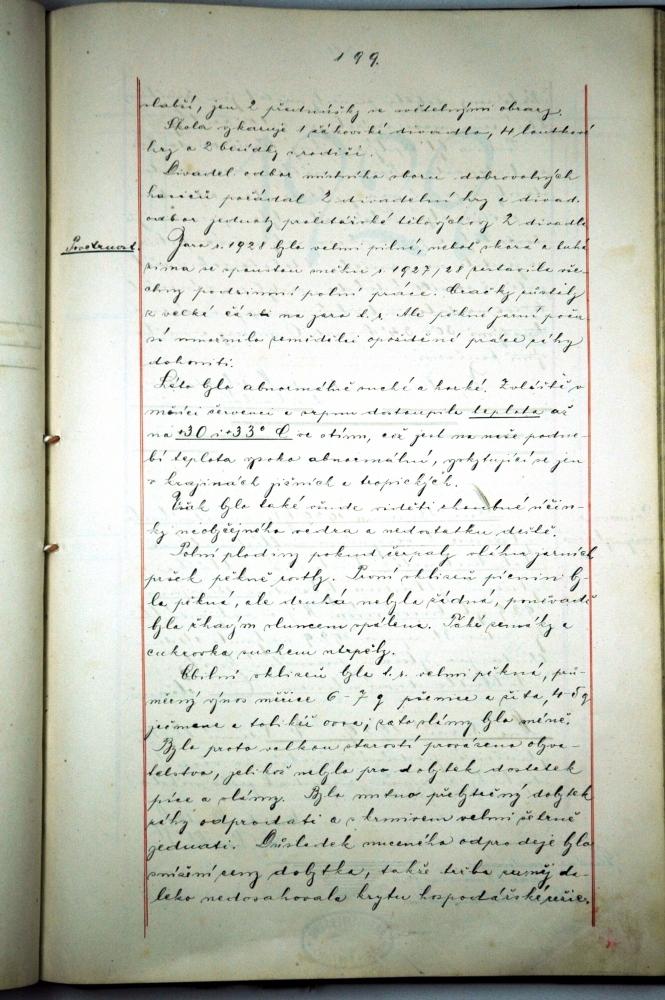 199.
slabší, jen 2 přednášky se světelnými obrazy.
Škola vykazuje 1 žákovské divadlo, 4 loutkové
hry a 2 besídky s rodiči.
Divadel. odbor místního sboru dobrovolných
hasičů pořádal 2 divadelní hry a divad.
odbor jednoty proletářské tělovýchovy 2 divadla
Povětrnost.
Jaro r. 1928 bylo velmi pilné, neboť skorá a tuhá
zima se spoustou sněhu r. 1927/28 zastavila vše-
chny podzimní polní práce. Oračky zůstaly
z velké části na jaro t. r. Ale pěkné jarní poča-
sí umožnilo zemědělci opožděné práce záhy
dohoniti.
Léto bylo abnormálně suché a horké. Zvláště v
měsíci červenci a srpnu dostoupila teplota až
na +30 i +33° C ve stínu, což jest na naše podne-
bí teplota vysoko abnormální, vyskytující se jen
v krajinách jižních a tropických.
Však bylo také všude viděti zhoubné účin-
ky neobyčejného vedra a nedostatku deště.
Polní plodiny pokud čerpaly vláhu jarních
pršek pěkně rostly. První sklizeň pícnin by-
la pěkná, ale druhá nebyla žádná, poněvadž
byla žhavým sluncem spálena. Také zemáky a
cukrovka suchem utrpěly.
Obilní sklizeň byla t. r. velmi pěkná, prů-
měrný výnos měřice 6-7 q pšenice a žita, 4-5 q
ječmene a tolikéž ovsa; zato slámy bylo méně.
Byla proto velkou starostí provázena obyva-
telstva, jelikož nebylo pro dobytek dostatek
píce a slámy. Bylo nutno přebytečný dobytek
záhy odprodati a s krmivem velmi šetrně
jednati. Důsledek nuceného odprodeje bylo
snížení ceny dobytka, takže tržba zaň da-
leko nedosahovala krytu hospodářské režie.